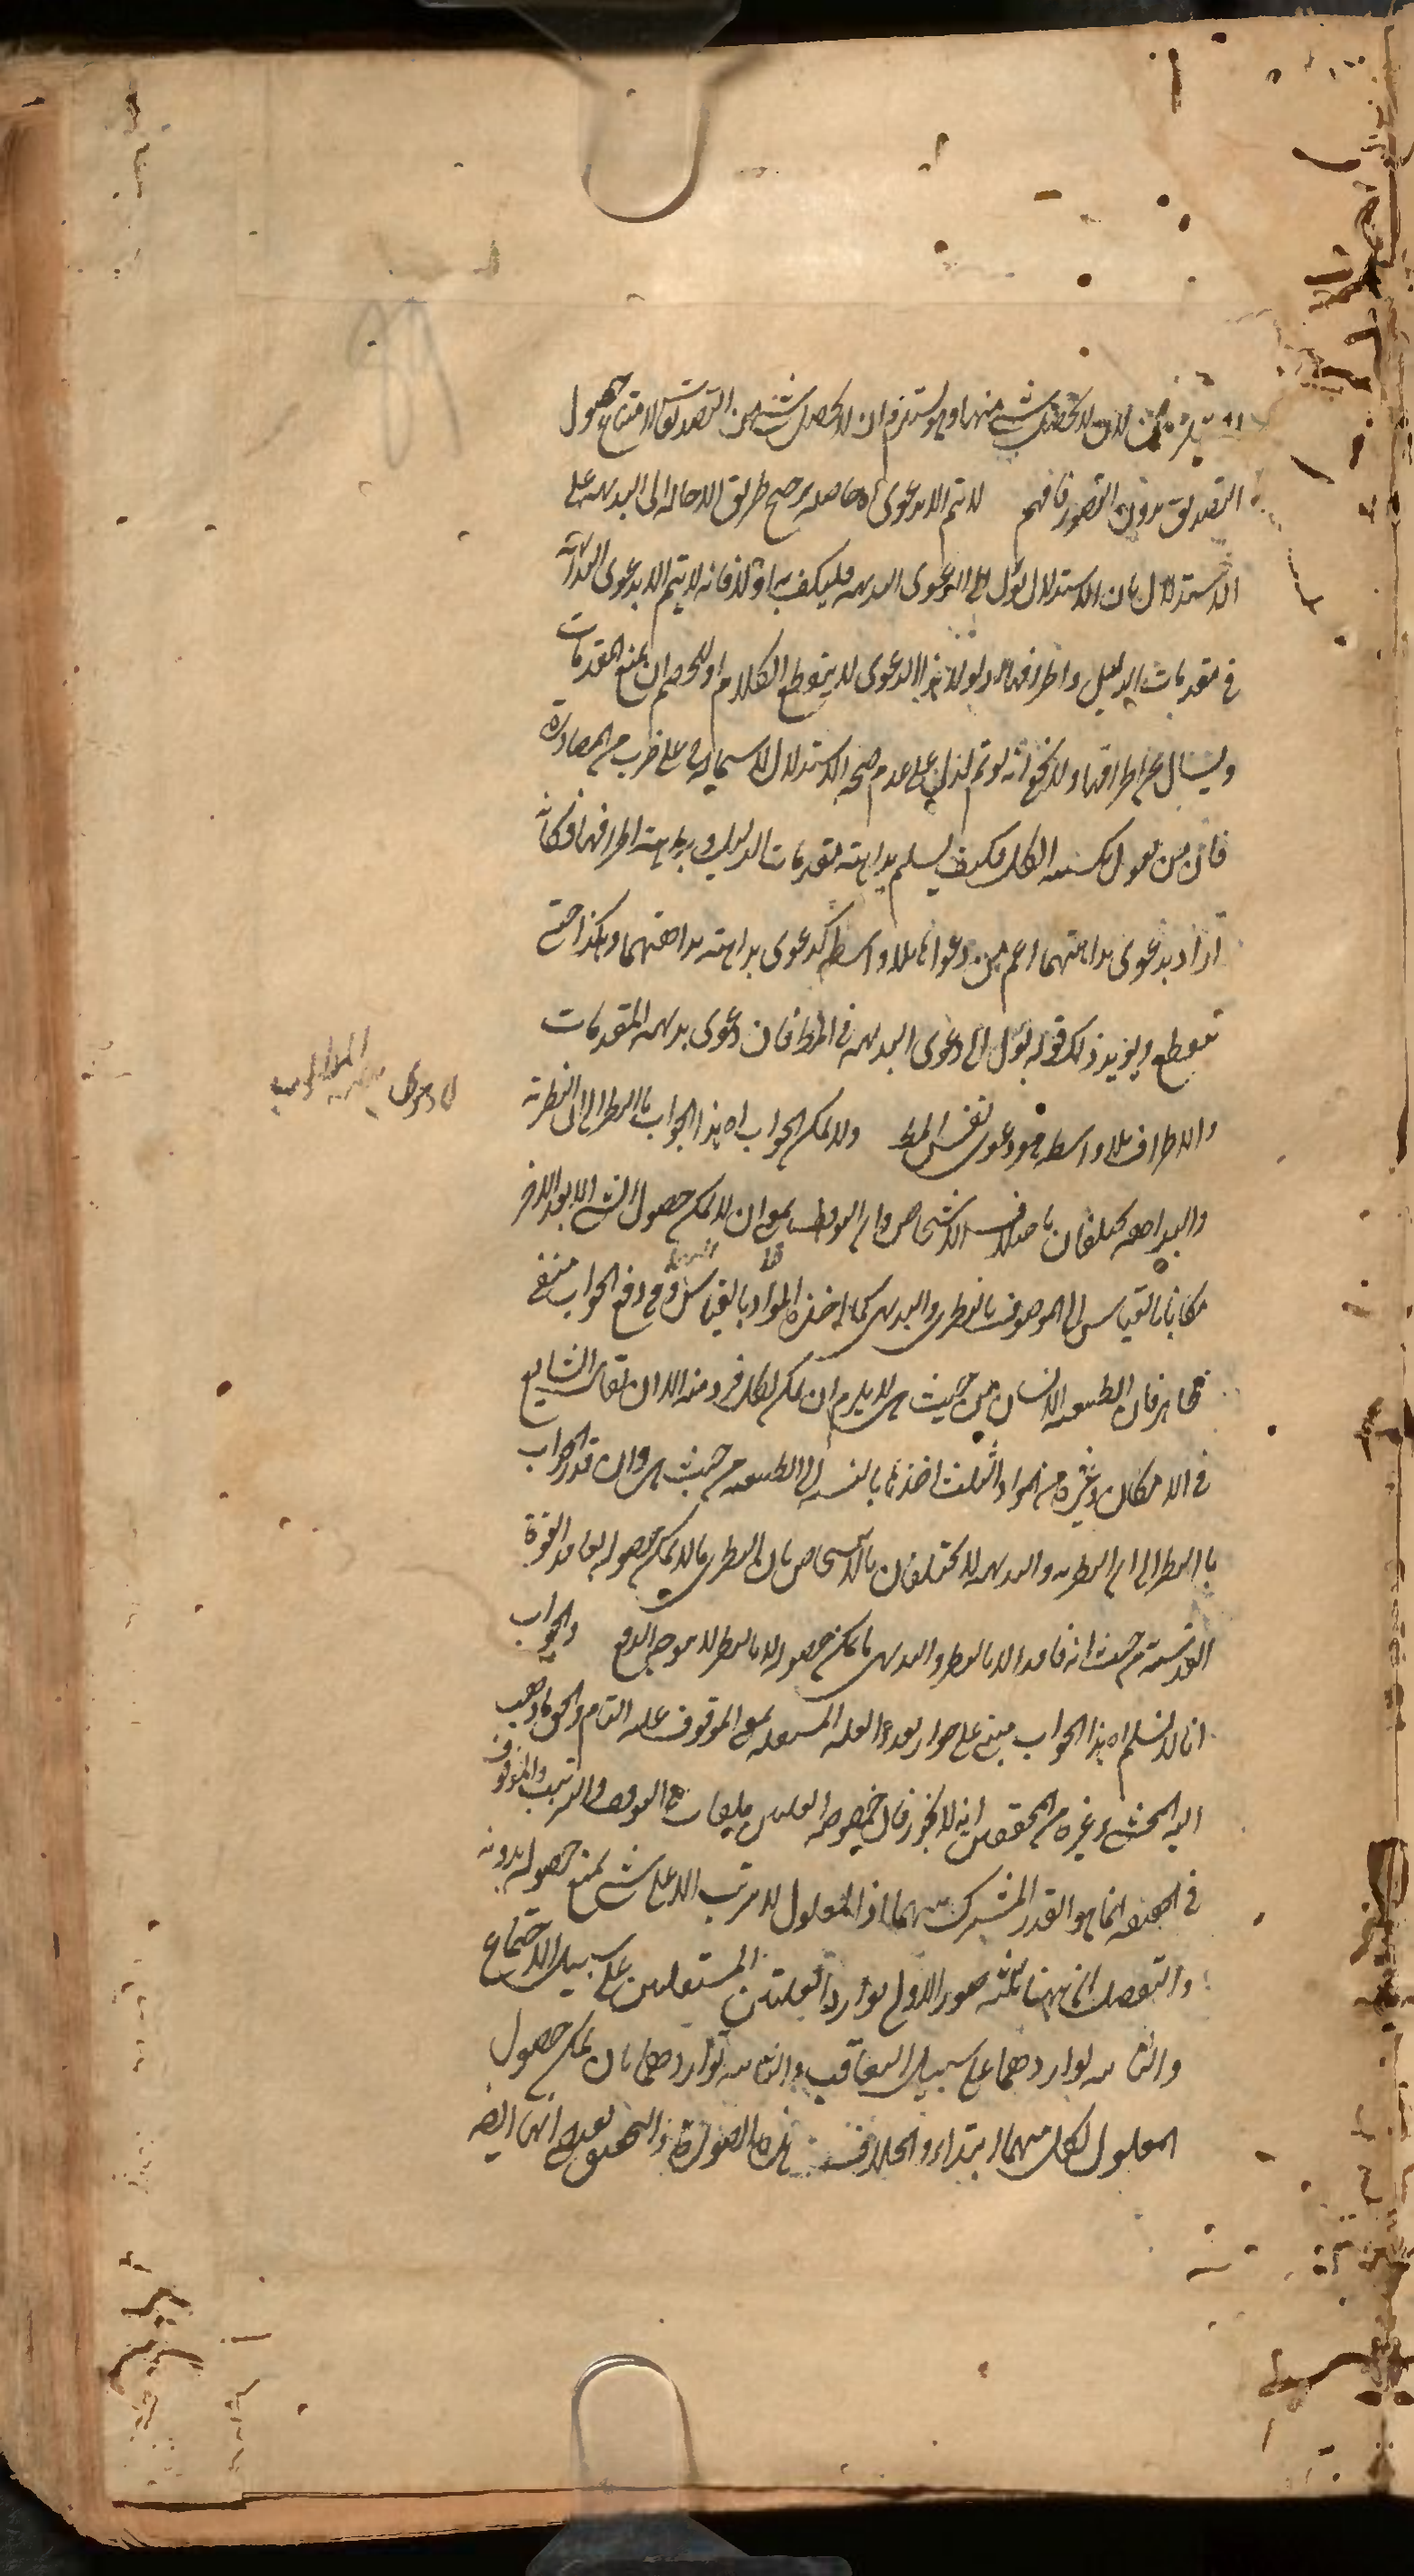 لان لا يحصل شيء منها وهو يستلزم ان لا يحصل شيء من التصديق لامتناع حصول
التصديق بدون التصور فافهم لا يتم الا بدعوى اه حاصله يرجح طريق الاحالة الى البديهة على
الاستدلال بان الاستدلال يؤل الى الدعوى البديهة فليكتف به اولا فانه لا يتم الا بدعوى البداهة
في مقدمات الدليل واطرافها ولولا هذا الدعوى لا ينقطع الكلام اذ للخصم ان يمنع المقدمات
ويسال عن اطرافها ولا يخفى انه لو تم لدل على عدم صحة الاستدلال لا سيما وهي على ضرب من المصادرة
فان من يقول بكسبية الكل فكيف يسلم بداهة مقدمات الدليل وبداهة اطرافها فكانه
اراد بدعوى بداهتهما اعم من دعواها بلا واسطة كدعوى بداهة بداهتهما وهكذا حتى
ينقطع ويؤيد ذلك قوله يؤل الى دعوى البديهة في المط فان دعوى بديهة المقدمات
والاطراف بلا واسطة هو دعوى نفس المط ولا يمكن الجواب اه هذا الجواب بالنظر الى ان النظرية
والبداهة يختلفان باختلاف الاشخاص وان التوقف بمعنى ان لا يمكن حصول الشيء الا بعد الاخر
مكانا بالقياس الى الموصوف بالنظري والبديهي كما اخذه المواد بالقياس وفي دفع الجواب منفي
ظاهر فان الطبيعة الانسان من حيث هي لا يلزم ان يمكن لكل فرد منه الا ان يقال الشايع
في الامكان وغيره من المواد الثلث اخذها بالنسبة الى الطبيعة من حيث هي وان قدر الجواب
بالنظر الى ان النظرية والبديهة لا يختلفان بالاشخاص بان النظري ما لا يمكن حصوله لفاقد القوة
القدسية من حيث انه فاقد الا بالنظر والبديهي ما يمكن حصوله لا بالنظر لا يتوجه الدفع والجواب
انا لا نسلم اه هذا الجواب مبني على جواز تعدد العلة المستقلة بمعنى الموقوف عليه التام والحق ما ذهب
اليه المحشي وغيره من المحققين انه لا يجوز فان خصوصية العلتين ملغاة في التوقف والترتب والموقوف
في الحقيقة انما هو القدر المشترك بينهما اذ المعلول لا يترتب الا على شيء يمتنع حصوله بدونه
والتفصيل ان ههنا ثلثة صور الاولى توارد العلتين المستقلتين على سبيل الاجتماع
والثانية تواردهما على سبيل التعاقب والثالثة تواردهما بان يمكن حصول
المعلول لكل منهما ابتداء والخلاف في هذه الصورة والتحقيق يقتضي انها ايضا